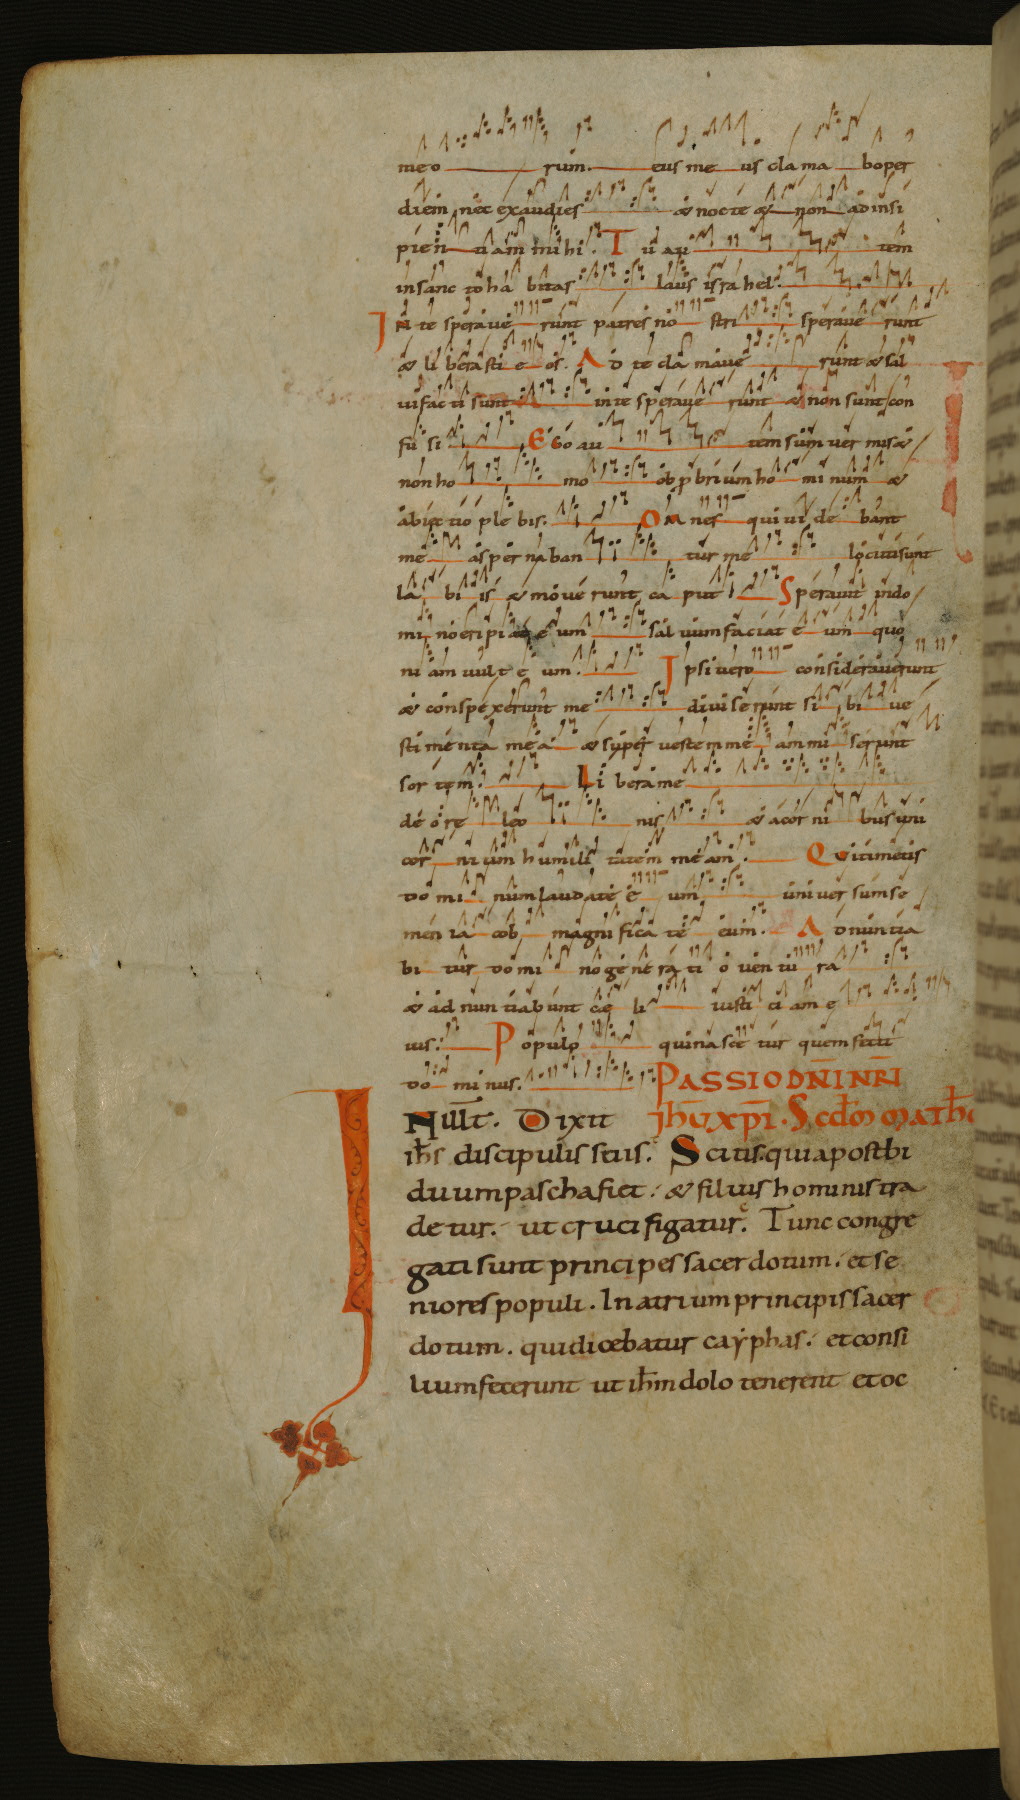 meo rum. eus me us clama bo per
diem nec exaudies & nocte & non ad insi
pien tiam mihi. Tu au tem
in sanc to ha bitas laus israhel.
IN te speraue runt patres no stri speraue runt
& li berasti e os. AD te clamaue runt & sal
ui facti sunt in te speraue runt & non sunt con
fu si EGO au tem sum uermis &
non ho mo obprbrium ho mi num &
abiectio ple bis. OMnes qui ui de bant
me aspernaban tur me locuti sunt
la bi is & mouerunt ca put Sperauit indo
mi no eripi e um saluum faciat e um quo
ni am uult e um. Ipsi uero considerauerunt
& conspexerunt me diuiserunt si bi ue
stimenta mea & super uestem me am miserunt
sor tem. Libera me
de ore leo nis & acorni bus uni
cor nium humilitatem meam. Qui timetis
domi num laudate e um uniuersum se
men iacob magnificate eum. ADnuntia
bi tur domi no generati o uentura
& adnuntiabunt cae li iusti ti am e
ius. Populo qui nascetur quem fecit
do minus. PASSIO DN̄I NR̄I
IN ill̅t. Dixit ih̅u xp̅i. Sc̅d̅m math̅
ih̅s discipulis suis. Scitis. quia post bi
duum pascha fiet. & filius hominis tra
detur. ut crucifigatur. Tunc congre
gati sunt principes sacerdotum. et se
niores populi. In atrium principis sacer
dotum. qui dicebatur cayphas. et consi
lium fecerunt ut ih̅m dolo tenerent et oc